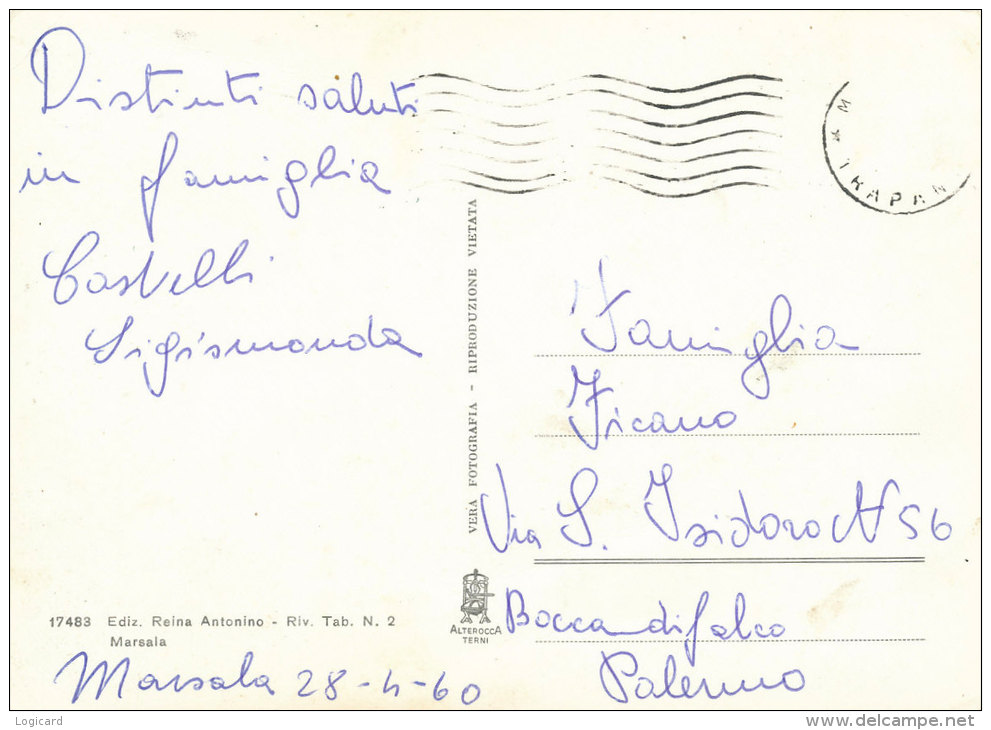 Distinti saluti
in famiglia
Castelli
Sigismonda
17483 Ediz. Reina Antonino - Riv. Tab. N. 2
Marsala
Marsala 28-4-60
VERA FOTOGRAFIA - RIPRODUZIONE VIETATA
ALTEROCCA
TERNI
TRAPAN
Famiglia
Ficano
Via S. Isidoro N 56
Boccadifalco
Palermo
Logicard
delcampe.net